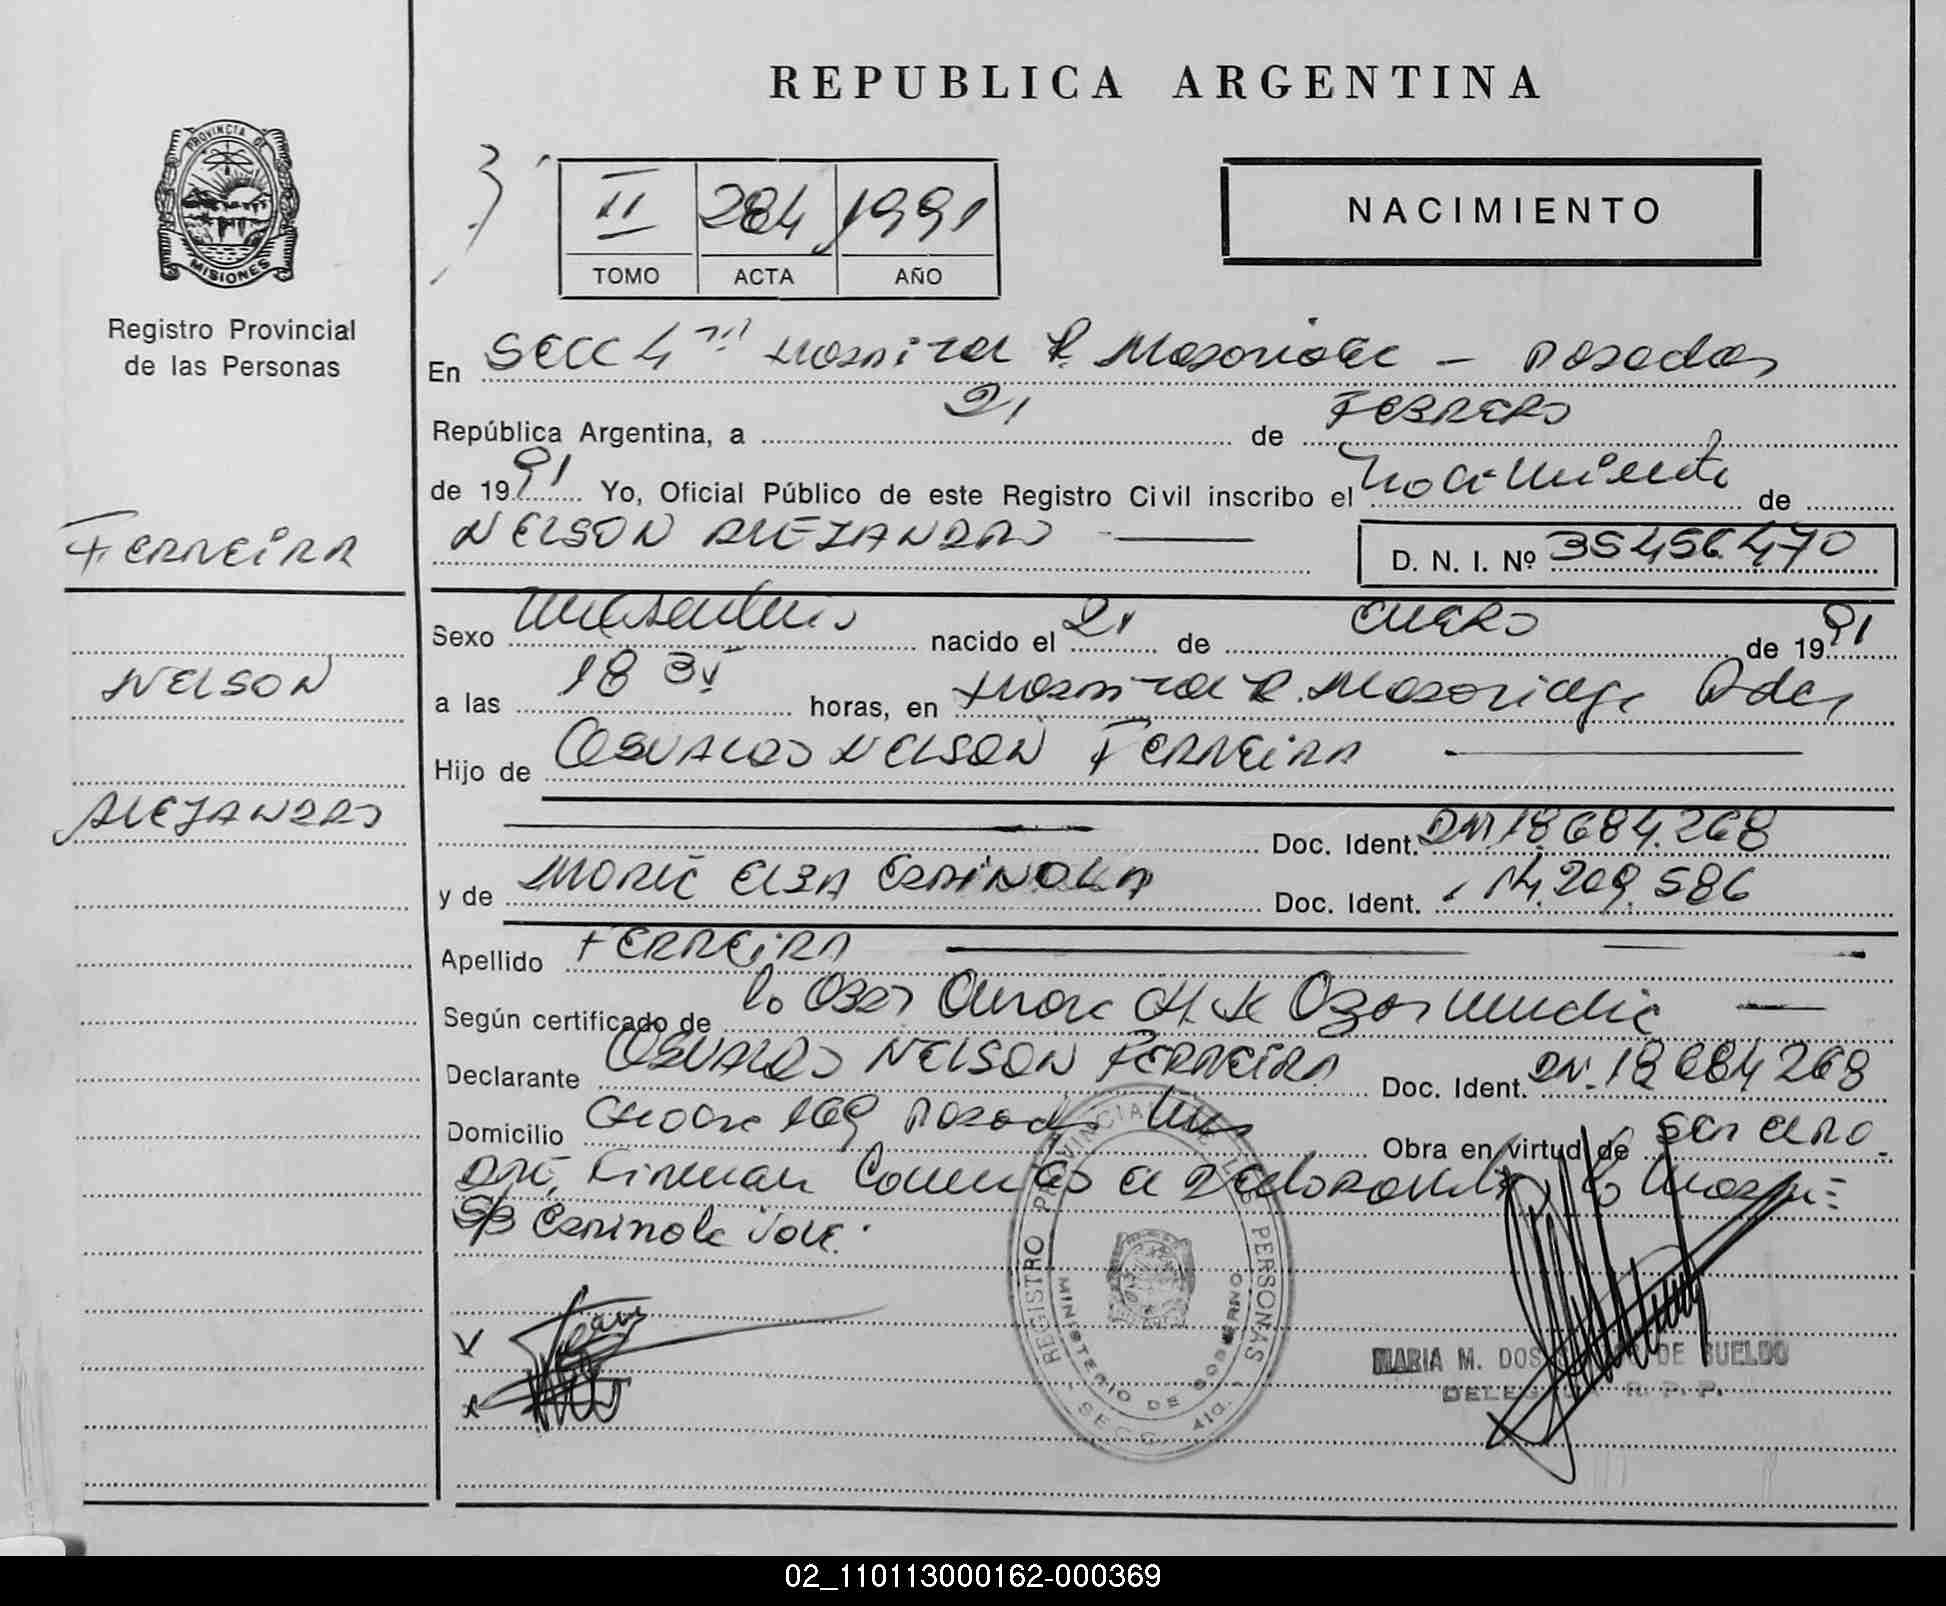 REPUBLICA ARGENTINA
PROVINCIA DE
MISIONES
Registro Provincial
de las Personas
II 284 1991
TOMO ACTA AÑO
NACIMIENTO
En SECC 4ta Hospital R. Madariaga - Posadas
República Argentina, a 21 de FEBRERO
de 1991 Yo, Oficial Público de este Registro Civil inscribo el Nacimiento de
NELSON ALEJANDRO
D. N. I. Nº 35.456.470
FERREIRA
NELSON
ALEJANDRO
Sexo Masculino nacido el 21 de ENERO de 1991
a las 18 horas, en Hospital R. Madariaga Pdas
Hijo de OSVALDO NELSON FERREIRA
Doc. Ident. DNI 18.684.268
y de MARIA ELBA Doc. Ident. 14.209.586
Apellido FERREIRA
Según certificado de la Obst
Declarante OSVALDO NELSON FERREIRA Doc. Ident. DNI. 18 684 268
Domicilio 169 Posadas Mnes Obra en virtud de ser el
Firman con el declarante la
Vale.
REGISTRO PROVINCIAL DE LAS PERSONAS
MINISTERIO DE GOBIERNO
SECC. 4ta.
MARIA M. DOS DE SUELDO
DELEGADA R. P. P.
02_110113000162-000369